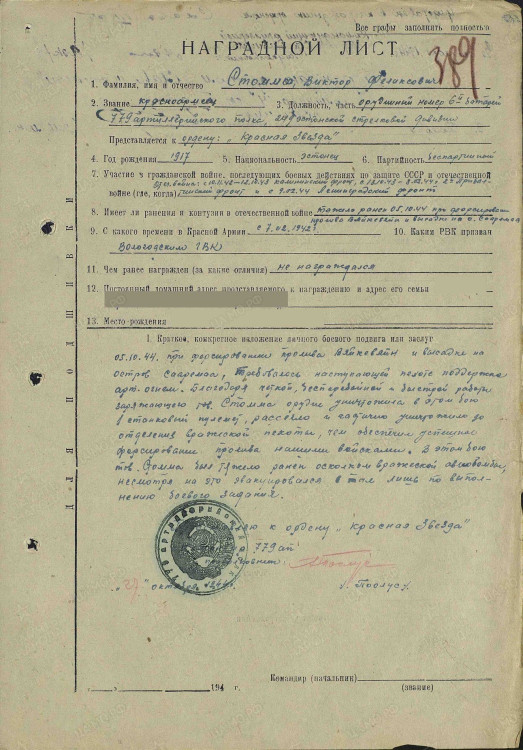 Все графы заполнить полностью
НАГРАДНОЙ ЛИСТ
389
1. Фамилия, имя и отчество Стомма, Виктор Феликсович
2. Звание красноармеец 3. Должность, часть орудийный номер 6й батареи
779 артиллерийского полка 249 эстонской стрелковой дивизии
Представляется к ордену: „Красная Звезда"
4. Год рождения 1917 5. Национальность эстонец 6. Партийность беспартийный
7. Участие в гражданской войне, последующих боевых действиях по защите СССР и отечественной
войне (где, когда) фронт и с 9.02.44 Ленинградский фронт
8. Имеет ли ранения и контузии в отечественной войне тяжело ранен 05.10.44 при форсировании
9. С какого времени в Красной Армии с 7.02.1942 г. 10. Каким РВК призван
Вологодским ГВК
11. Чем ранее награжден (за какие отличия) не награждался
12. Постоянный домашний адрес представляемого к награждению и адрес его семьи
13. Место рождения
I. Краткое, конкретное изложение личного боевого подвига или заслуг
05.10.44. при форсировании пролива Вяйкевяйн и высадке на
остров Сааремаа, требовалось наступающей пехоте поддержка
арт. огнем. Благодаря четкой, бесперебойной и быстрой работы
заряжающего тов. Стомма орудие уничтожило в этом бою
станковый пулемет, рассеяло и частично уничтожило до
отделения вражеской пехоты, чем обеспечило успешное
форсирование пролива нашими войсками. В этом бою
тов. Стомма был тяжело ранен осколком вражеской авиабомбы,
несмотря на это эвакуировался в тыл лишь по выпол-
нению боевого задания.
к ордену „Красная Звезда"
779 ап
„27" октября
Паулус
Командир (начальник)
(звание)
194 г.